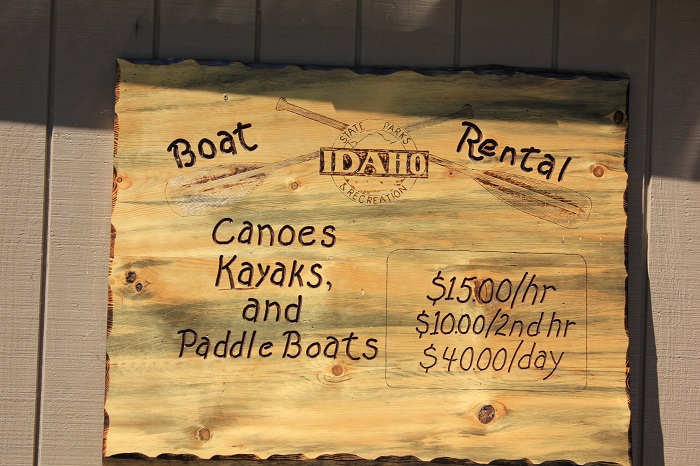 Boat Rental
STATE PARKS
IDAHO
& RECREATION
Canoes
Kayaks,
and
Paddle Boats
$15.00/hr
$10.00/2nd hr
$40.00/day